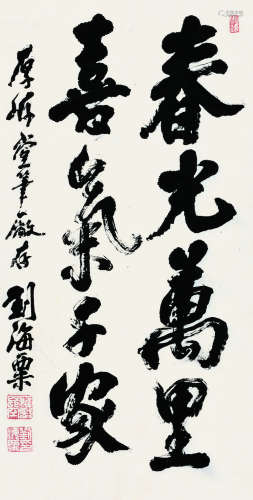 春光萬里
喜氣千家
堂筆存
劉海粟